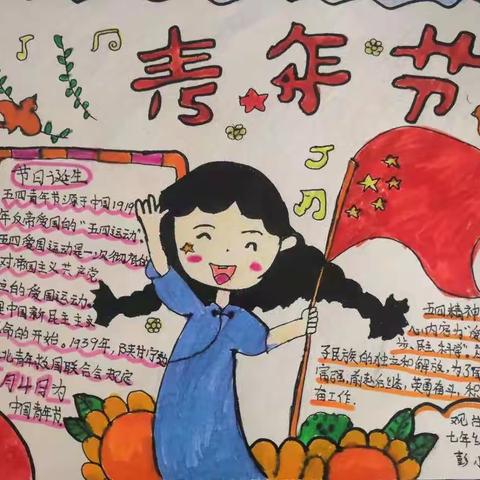 青年节
节日诞生
五四青年节源于中国1919
年反帝爱国的"五四运动"
五四爱国运动是一次彻底的
对帝国主义共产党
的爱国运动。
中国新民主主义
命的开始。1939年,陕甘宁边
北青年救国联合会规定
月4日为
中国青年节。
五四精神
心内容为"
、民主、科学"
子民族的独立和解放,为了
富强,前赴后继,英勇奋斗,积
奋工作。
七年级
彭